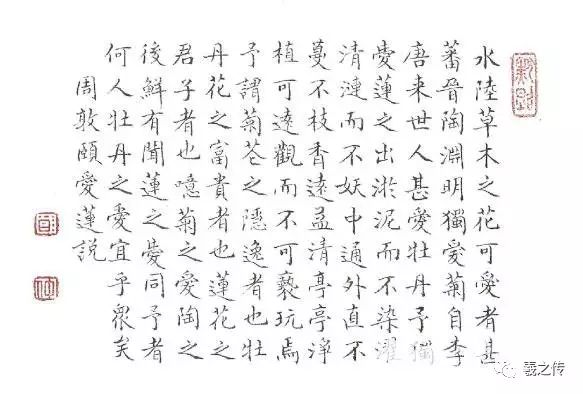 水陸草木之花可愛者甚
蕃晉陶淵明獨愛菊自李
唐来世人甚愛牡丹予獨
愛蓮之出淤泥而不染濯
清漣而不妖中通外直不
蔓不枝香遠益清亭亭淨
植可遠觀而不可褻玩焉
予謂菊芲之隱逸者也牡
丹花之富貴者也蓮花之
君子者也噫菊之愛陶之
後鮮有聞蓮之愛同予者
何人牡丹之愛宜乎眾矣
周敦頤愛蓮説
羲之传